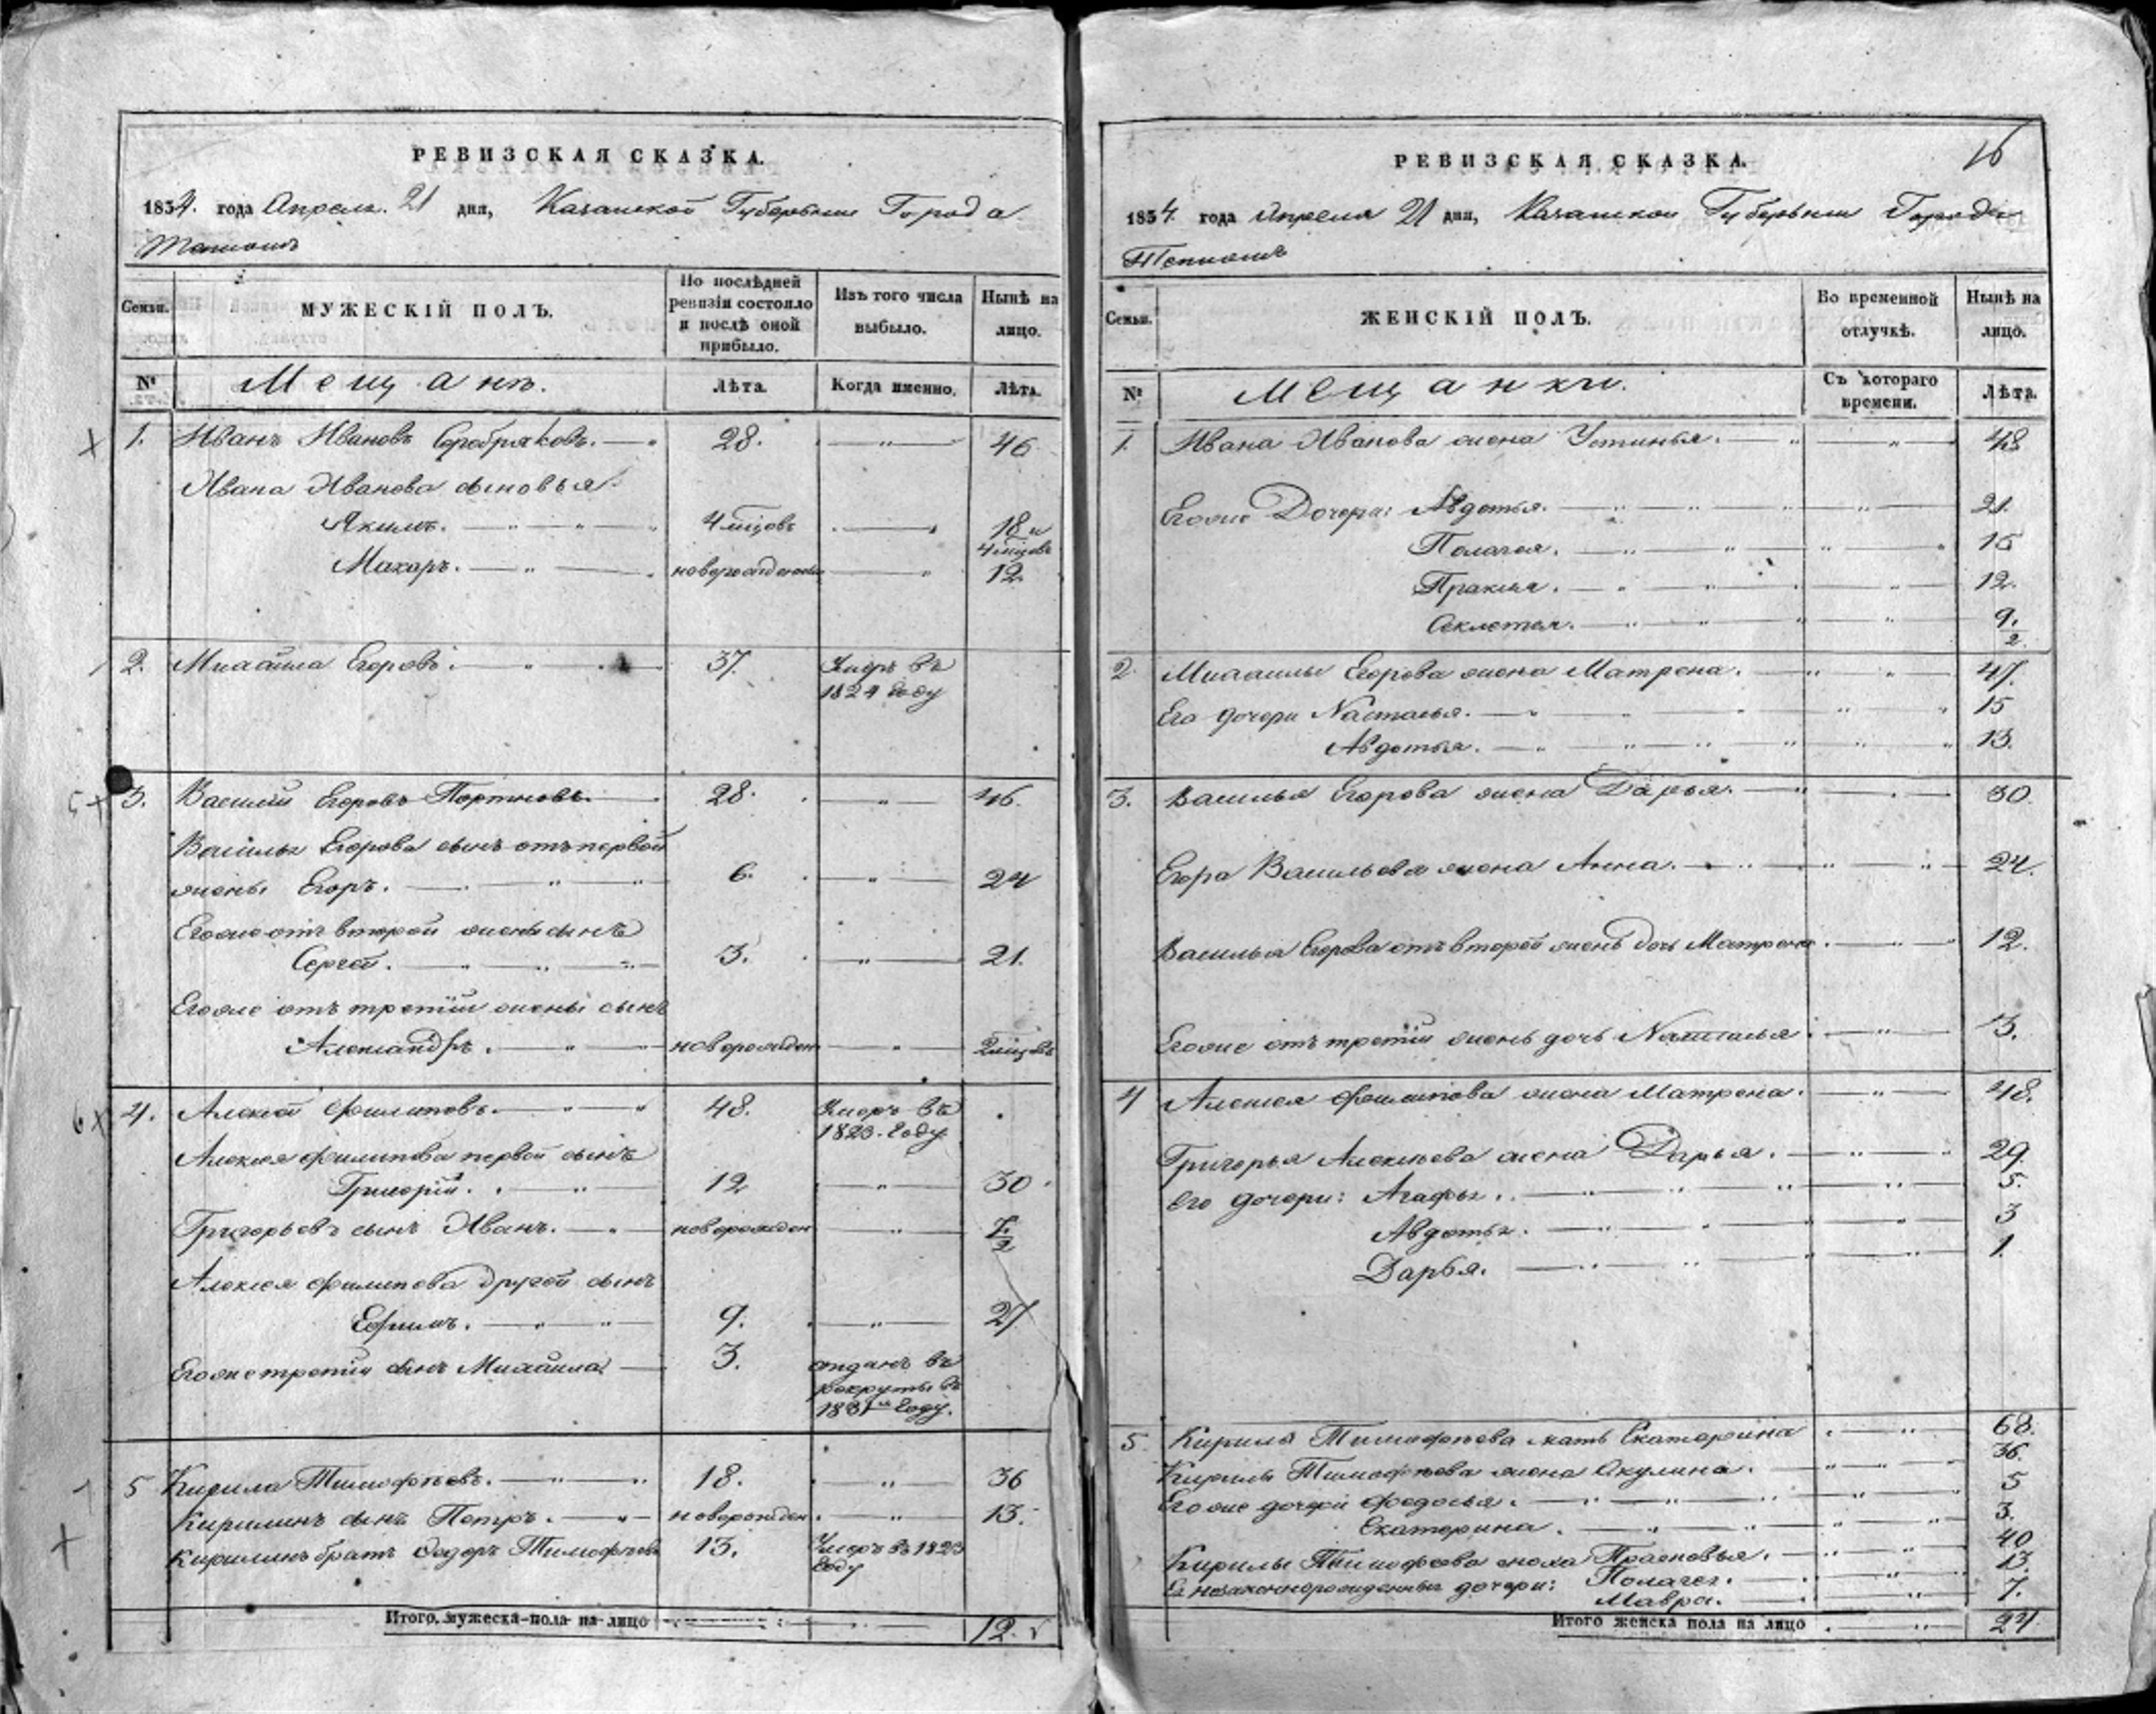 РЕВИЗСКАЯ СКАЗКА.
1834. года Апреля 21 дня, Казанской Губернии Города
Тетюшъ
Семьи.
МУЖЕСКІЙ ПОЛЪ.
По послѣдней ревизіи состояло и послѣ оной прибыло.
Изъ того числа выбыло.
Нынѣ на лицо.
№
Мещанъ.
Лѣта.
Когда именно.
Лѣта.
1. Иванъ Ивановъ Серебряковъ. 28. 46
Ивана Иванова сыновья
Якимъ. 4 мцовъ 18 и 4 мцовъ
Макаръ. новорожденны 12.
2. Михайла Егоровъ. 37. Умеръ въ
1824 году
3. Василий Егоровъ Портновъ. 28. 46.
Василья Егорова сынъ отъ первой
жены Егоръ. 6. 24
Егоже отъ второй жены сынъ
Сергей. 3. 21.
Егоже отъ третіи жены сынъ
Александръ. новорожден 2 мцовъ
4. Алексей Филиповъ. 48. Умеръ въ
1823. году
Алексея Филипова первой сынъ
Григорій. 12 30
Григорьевъ сынъ Иванъ. новорожден 7.
2
Алексея Филипова другой сынъ
Ефимъ. 9. 27
Егоже третіи сынъ Михайла 3. отданъ въ
рекруты въ
1831м году.
5 Кирила Тимофѣевъ. 18. 36
Кирилинъ сынъ Петръ. новорожден. 13.
Кирилинъ братъ Федоръ Тимофѣевъ 13. Умеръ въ 1823
году
Итого мужеска-пола на лицо 12.
РЕВИЗСКАЯ СКАЗКА.
16
1834. года Апреля 21 дня, Казанской Губернии Города
Тетюшъ
Семьи.
ЖЕНСКІЙ ПОЛЪ.
Во временной отлучкѣ.
Нынѣ на лицо.
№
Мещанки.
Съ котораго времени.
Лѣта.
1. Ивана Иванова жена Устинья. 48
Егоже Дочери: Авдотья. 21.
Пелагея. 16
12.
9.
2
2 Михаилы Егорова жена Матрена. 47.
Его дочери Настасья. 15
Авдотья. 13.
3. Василья Егорова жена Дарья. 30.
Егора Васильева жена Анна. 24.
Василья Егорова отъ второй жены дочь Матрена. 12.
Егоже отъ третіи жены дочь Наталья 3.
4 Алексея Филипова жена Матрена. 48.
Григорья Алексеева жена Дарья. 29.
Его дочери: Агафья. 5.
Авдотья. 3
Дарья. 1.
5 Кирила Тимофѣева мать Екатерина 68.
Кирилы Тимофѣева жена Акулина. 36.
Егоже дочери Федосья. 5
Екатерина. 3.
Кирилы Тимофеева сноха Прасковья. 40
Ея незаконнорожденныя дочери: Пелагея. 13.
Мавра. 7.
Итого женска пола на лицо 24